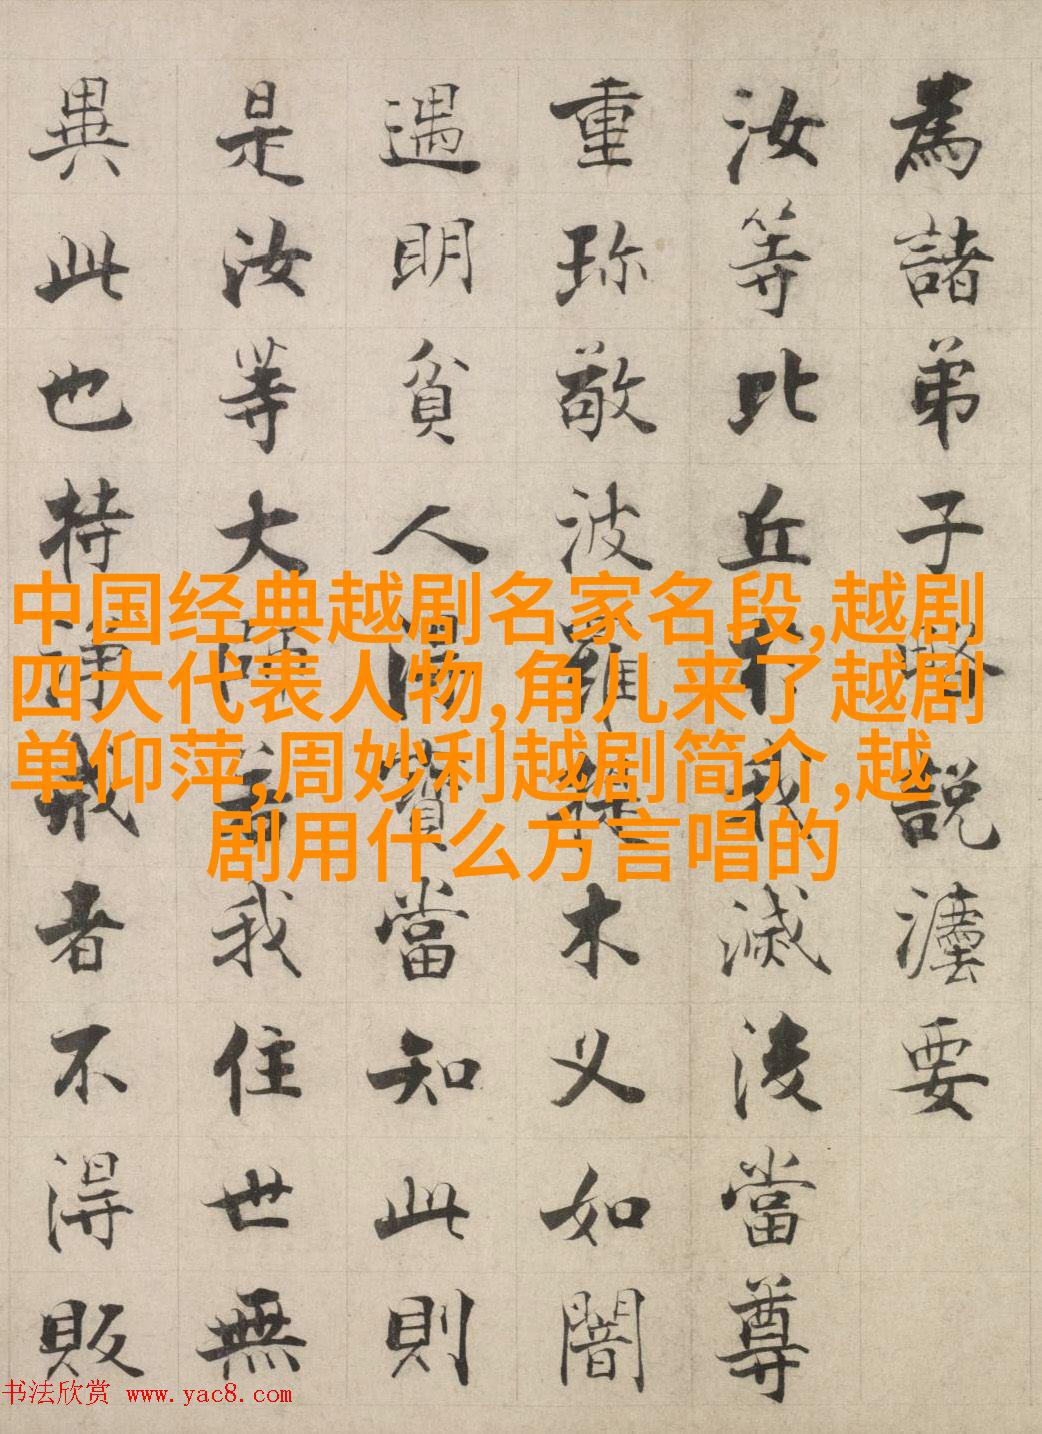 為諸弟子略說灋要
汝等比丘於我滅後當尊
重珎敬波羅提木义如闇
遇明貧人得寶當知此則
是汝等大師若我住世無
異此也持淨戒者不得販
中国经典越剧名家名段,越剧
四大代表人物,角儿来了越剧
单仰萍,周妙利越剧简介,越
剧用什么方言唱的
书法欣赏 www.yac8.com